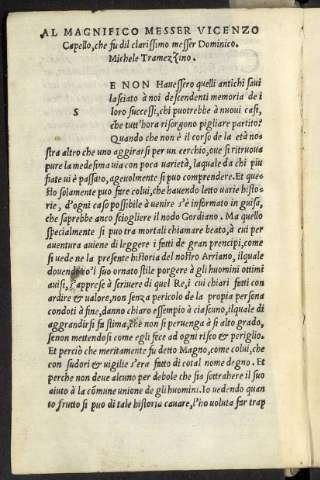 AL MAGNIFICO MESSER VICENZO
Capello, che fu dil clarissimo messer Dominico.
Michele Tramezzino.
S
E NON Havessero quelli antichi savi
lasciato à noi descendenti memoria de i
loro successi, chi potrebbe à nuovi casi,
che tutt'hora risorgono pigliare partito?
Quando che non è il corso de la età nos
stra altro che uno aggirarsi per un cerchio, ove si ritruova
pure la medesima via con poca varietà, laquale da chi piu
fiate vi è passato, agevolmente si puo comprendere. Et ques
sto solamente puo fare colui, che havendo letto varie histo
rie, d'ogni caso possibile à venire s'è informato in guisa,
che saprebbe anco sciogliere il nodo Gordiano. Ma quello
specialmente si puo tra mortali chiamare beato, à cui per
aventura aviene di leggere i fatti de gran prencipi, come
si vede ne la presente historia del nostro Arriano, ilquale
dovendo'l suo ornato stile porgere à gli huomini ottimi
avisi, s'apprese à scrivere di quel Re, i cui chiari fatti con
ardire & valore, non senza pericolo de la propia persona
condoti à fine, danno chiaro essempio à ciascuno, ilquale di
aggrandirsi fa stima, che non si pervenga à si alto grado,
se non mettendosi come egli fece ad ogni risco & periglio.
Et perciò che meritamente fu detto Magno, come colui, che
con sudori & vigilie s'era fatto di cotal nome degno. Et
perche non deve alcuno per debole che sia sottrahere il suo
aiuto à la cõmune unione de gli huomini. Io vedendo quan
to frutto si puo di tale historia cavare, l'ho voluta far trap